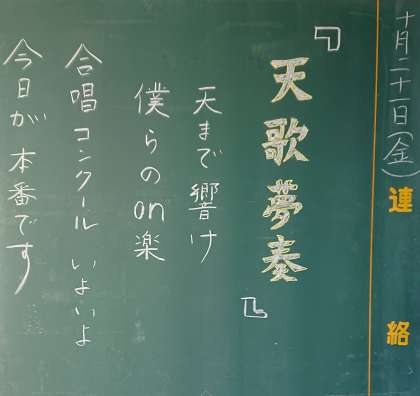 十月二十一日(金)
連絡
『天歌夢奏』
天まで響け
僕らのon楽
合唱コンクール いよいよ
今日が本番です